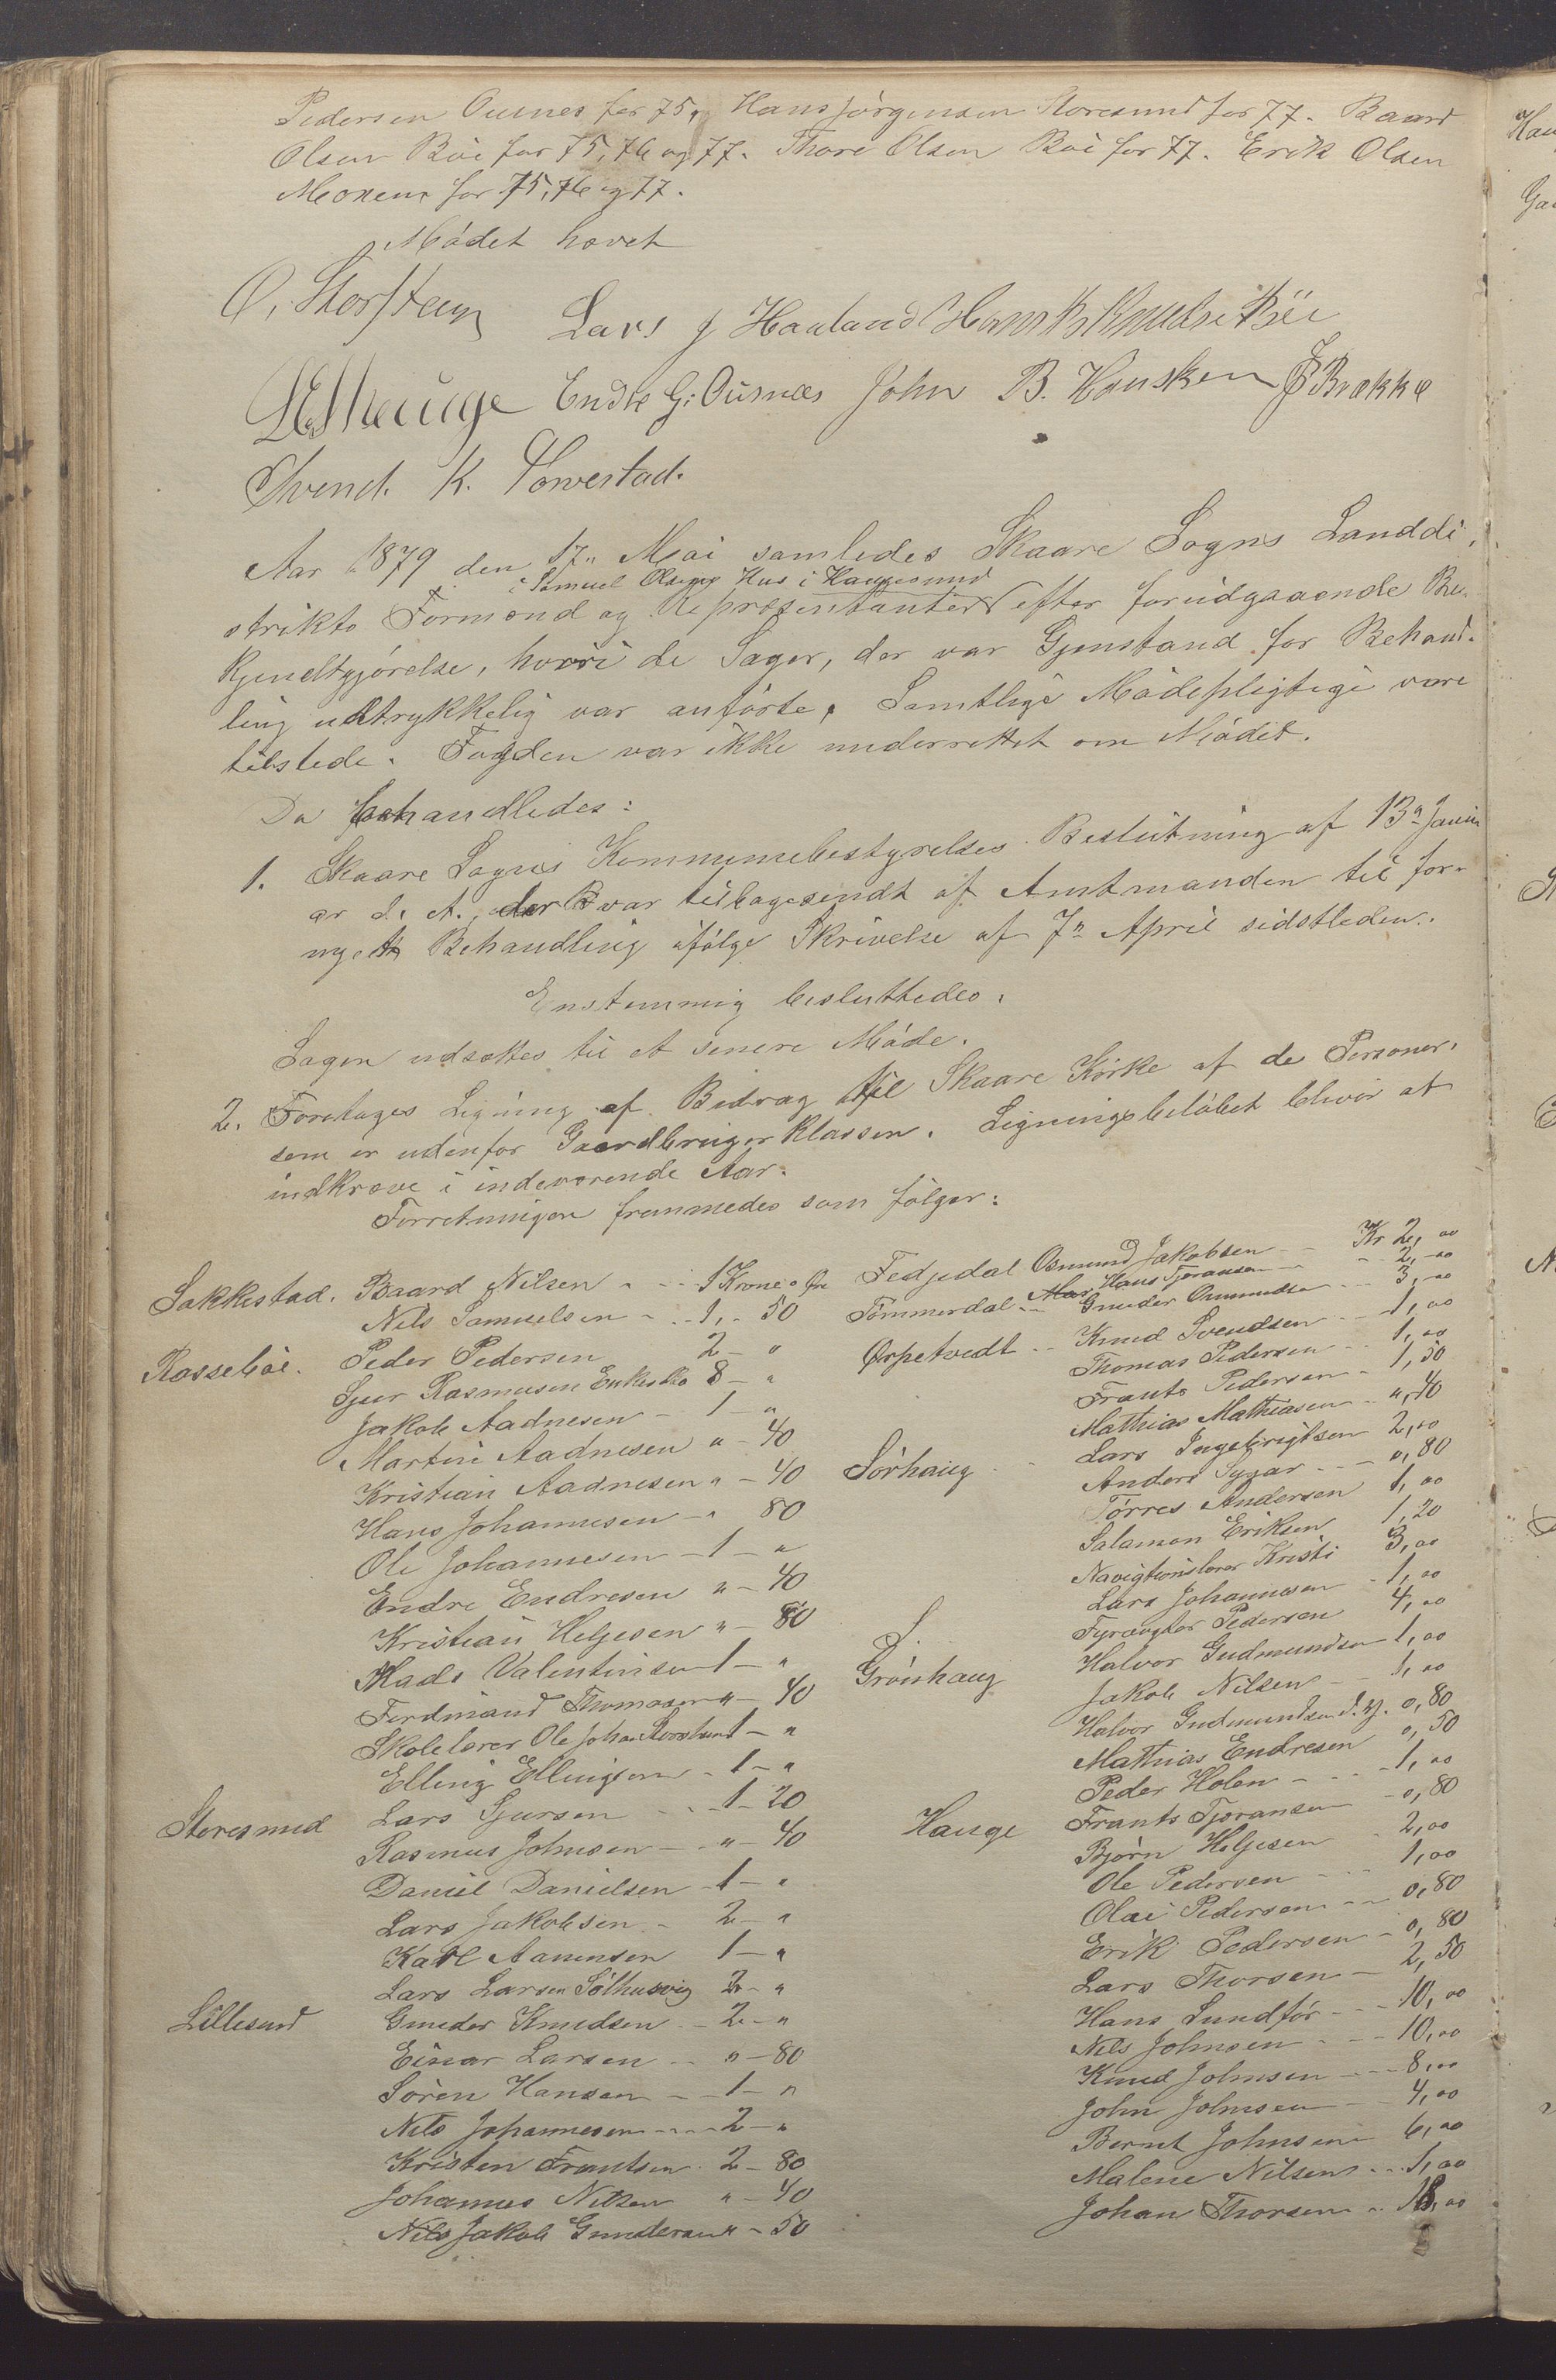 Pedersen Ousnes for 75, Hans Jørgensen Storesund for 77. Baard
Olsen Bøe for 75, 76 og 77. Thore Olsen Bøe for 77. Erik Olsen
for 75, 76 og 77.
Mødet hævet
O. Storsteen
Lars J Haaland Hans K Knudsen Bøe
Hauge Endre G: Ousnæs John B. Hausken Brække
Svend K. Vorrestad.
Aar 1879 den 17de Mai samledes Skaare Sogns Landdi-
i Samuel Olsens Hus i Haugesund
strikts Formænd og Repræsentanter efter forudgaaende Be-
kjendtgjørelse, hvori de Sager, der var Gjenstand for Behand-
ling udtrykkelig var anførte. Samtlige Mødepligtige vare
tilstede. Fogden var ikke underrettet om Mødet.
Da behandledes:
1. Skaare Sogns Kommunebestyrelses Beslutning af 13de Janu
ar d. A. der var tilbagesendt af Amtmanden til for-
nyet Behandling ifølge Skrivelse af 7de April sidstleden.
Enstemmig besluttedes.
Sagen udsættes til et senere Møde.
2. Foretoges Ligning af Bidrag til Skaare Kirke af de Personer,
som er udenfor Gaardbrugerklassen. Ligningsbeløbet bliver at
indkræve i indeværende Aar.
Forretningen fremmedes som følger:
Sakkestad. Baard Nilsen 1 Krone " Øre
Nils Samuelsen 1, 50
Rossebøe. Peder Pedersen 2 - "
Sjur Rasmusen Enkesko 8 - "
Jakob Aadnesen - 1 - "
Martin Aadnesen " - 40
Kristian Aadnesen " - 40
Hans Johannesen - " 80
Ole Johannesen - 1 - "
Endre Endresen " - 40
Kristian Helgesen " - 80
Mads Valentinsen 1 - "
Ferdinand Thomasen " - 40
Skolelærer Ole Johan 1 - "
Elling Ellingsen - 1 - "
Storesund Lars Sjursen - 1 - 20
Rasmus Johnsen - " - 40
Daniel Danielsen - 1 - "
Lars Jakobsen - 2 - "
Karl Aanensen 1 - "
Lars Larsen Sølhusvig 2 - "
Lillesund Gunder Knudsen - 2 - "
Einar Larsen - " - 80
Søren Hansen - 1 - "
Nils Johannesen - 2 - "
Kristen Frantsen - 2 - 80
Johannes Nilsen " - 40
Nils Jakob Gundersen " - 50
Fedjedal Osmund Jakobsen Kr 2, 00
Tømmerdal Hans Tjøransen 2, 00
Gunder Osmundsen 3, 00
Ørpetvedt Knud Svendsen 1, 00
Thomas Pedersen 1, 00
Frants Pedersen 1, 50
Mathias Mathiasen ", 40
Sørhaug Lars Ingebrigtsen 2, 00
Anders Sysar 0, 80
Tørres Andersen 1, 00
Salamon Eriksen 1, 20
Navigtionslærer Kristi 3, 00
Lars Johannesen 1, 00
Fyrvogter Pedersen 4, 00
Grønhaug Halvor Gudmundsen 1, 00
Jakob Nilsen 1, 00
Halvor Gudmundsen d. y. 0, 80
Mathias Endresen 0, 50
Peder Holen 1, 00
Hauge Frants Tjøransen 0, 80
Bjørn Helgesen 2, 00
Ole Pedersen 1, 00
Olai Pedersen 0, 80
Erik Pedersen 0, 80
Lars Thorsen 2, 50
Hans Sundfør 10, 00
Nils Johnsen 10, 00
Knud Johnsen 8, 00
John Johnsen 4, 00
Bernt Johnsen 6, 00
Malene Nilsen 1, 00
Johan Thorsen